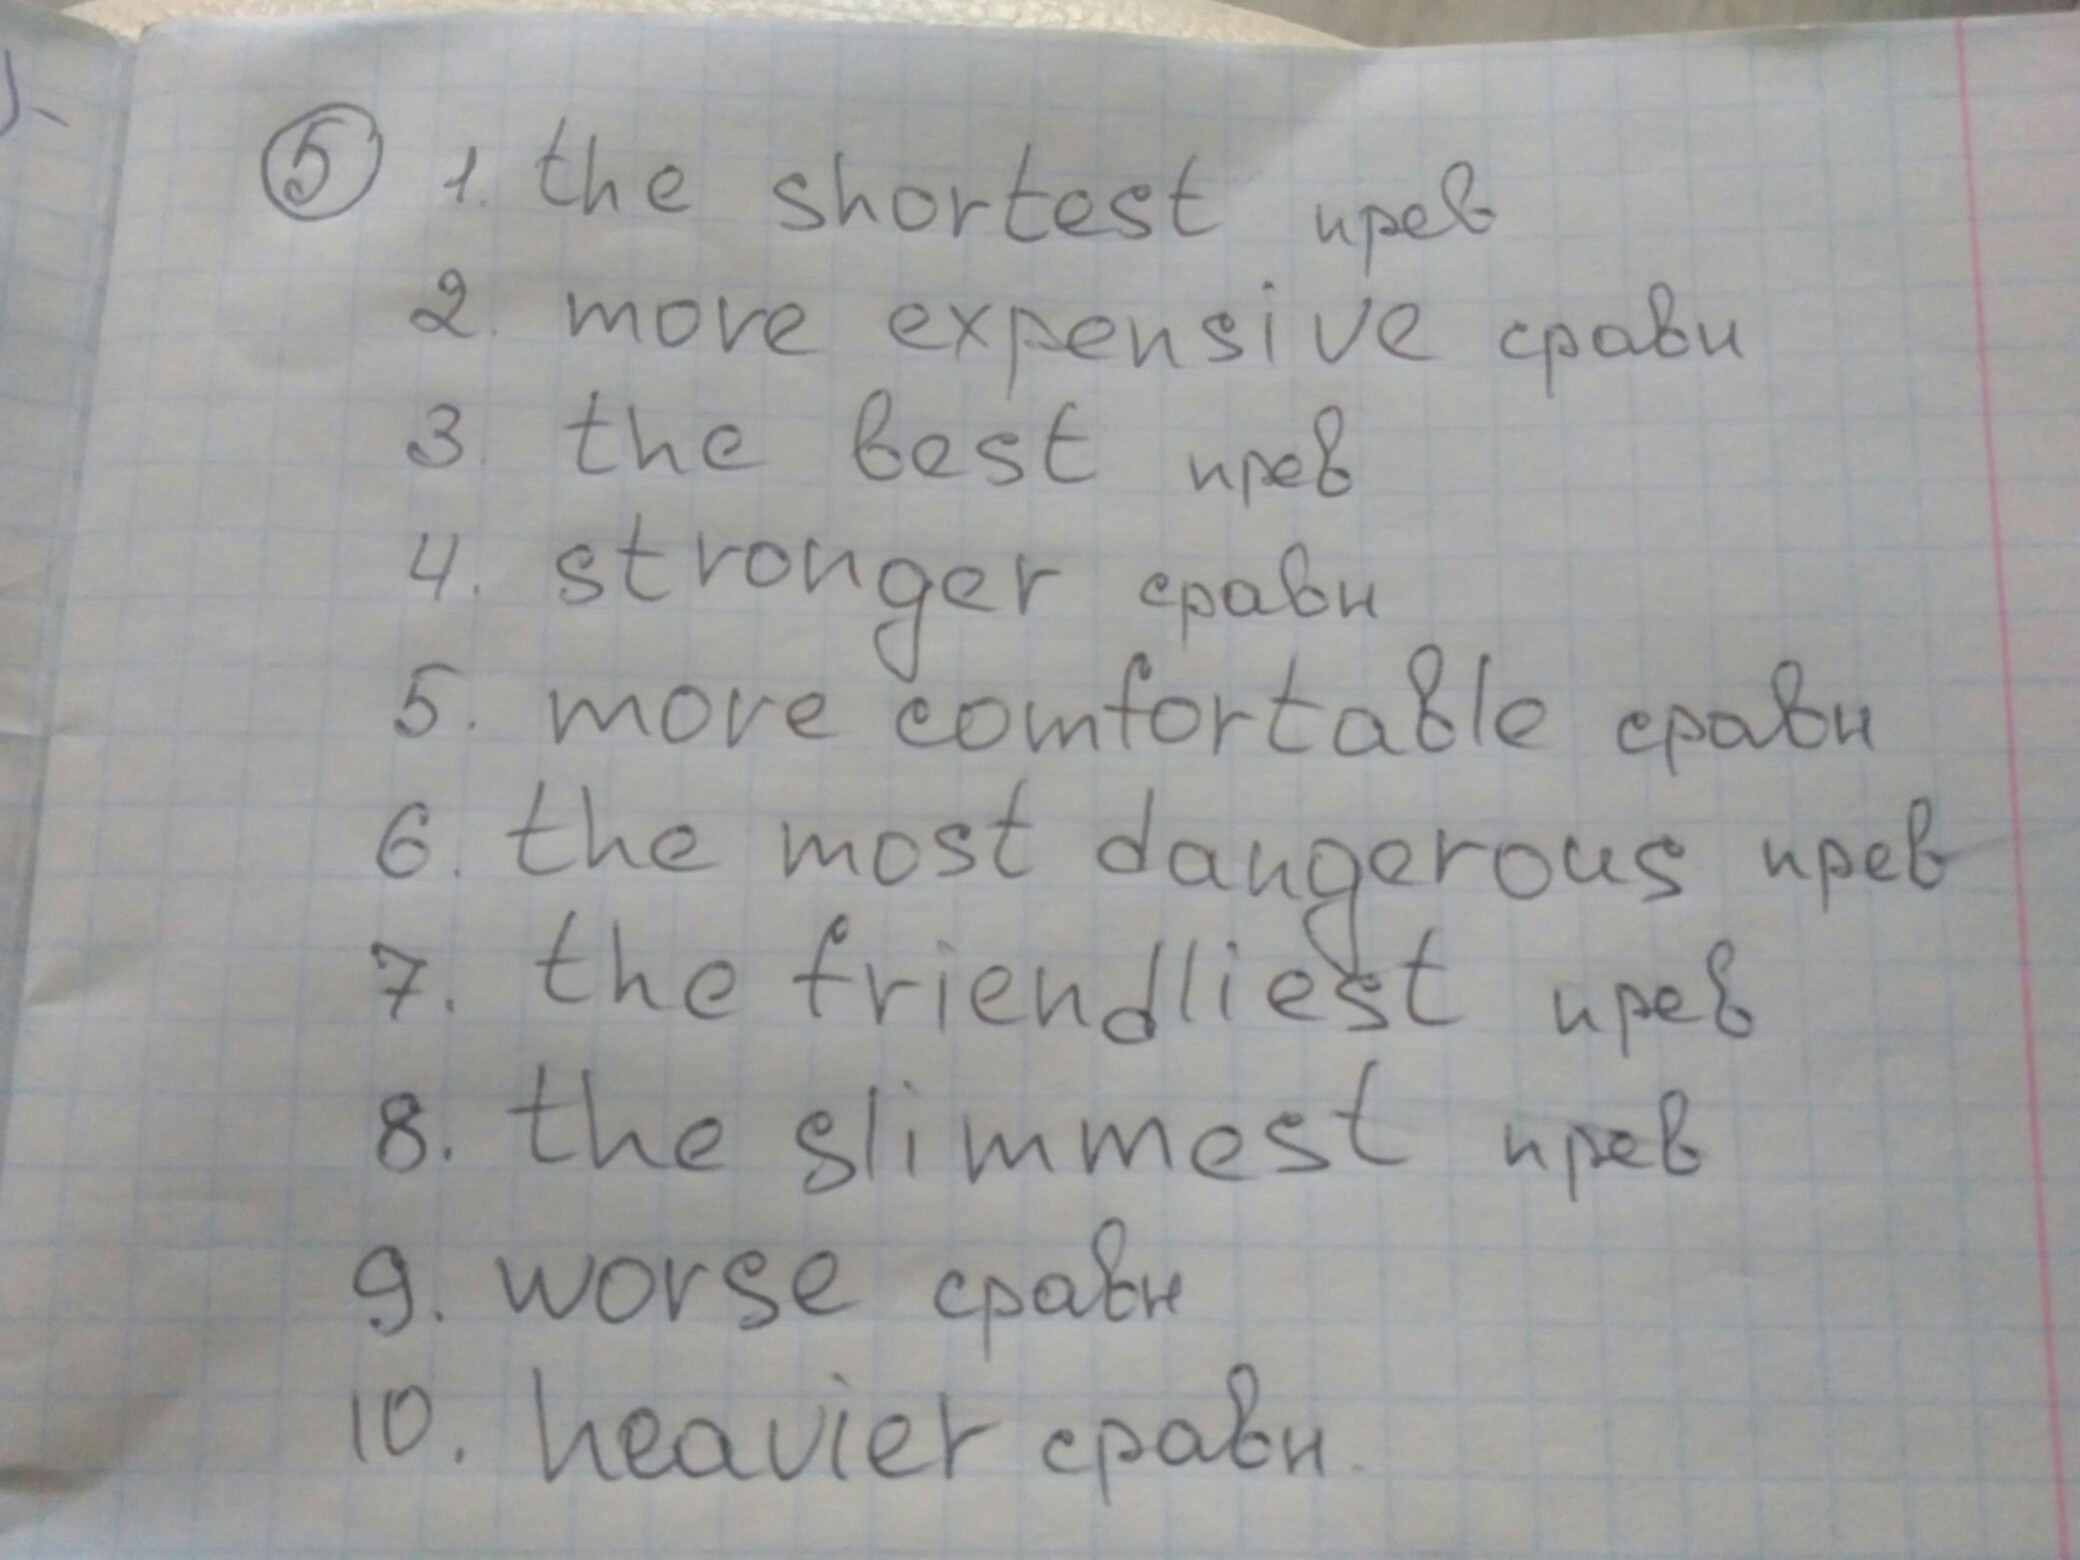 5 1. the shortest прев
2. more expensive сравн
3. the best прев
4. stronger сравн
5. more comfortable сравн
6. the most dangerous прев
7. the friendliest прев
8. the slimmest прев
9. worse сравн
10. heavier сравн.